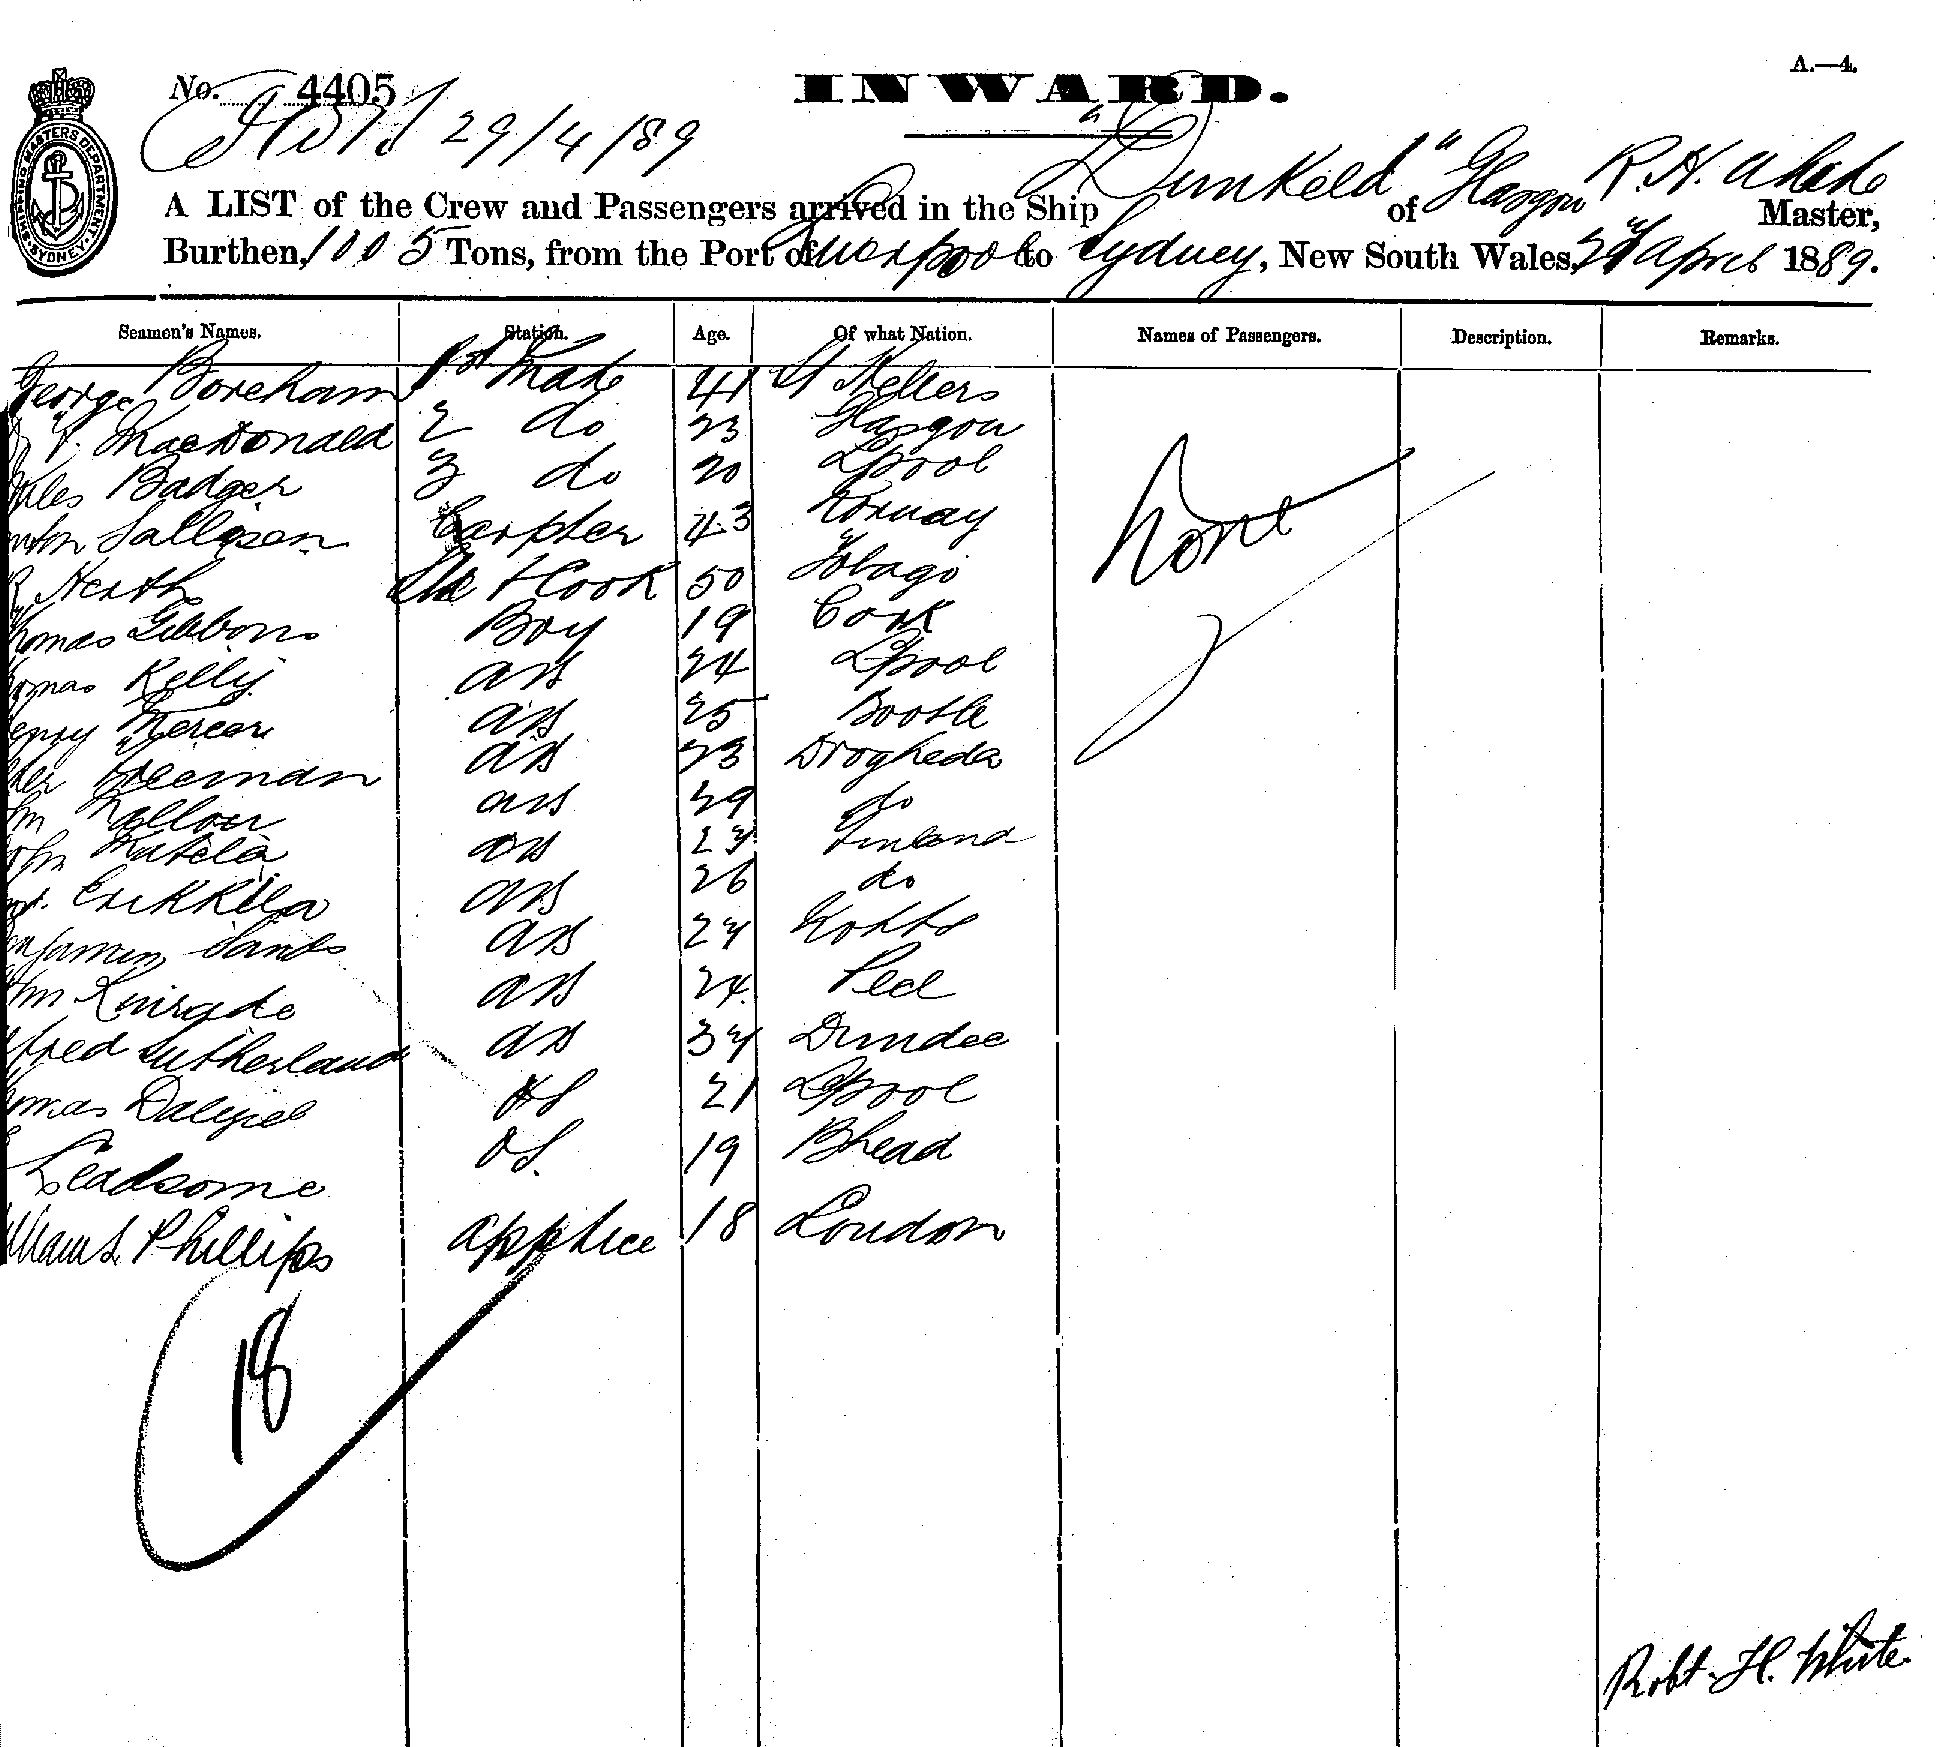 A.—4.
No. 4405
INWARD.
29/4/89
SHIPPING MASTERS DEPARTMENT. SYDNEY
A LIST of the Crew and Passengers arrived in the Ship "Dunkeld" of Glasgow R. H. White Master,
Burthen, 1005 Tons, from the Port of Liverpool to Sydney, New South Wales, April 1889.
Seamen's Names. Station. Age. Of what Nation. Names of Passengers. Description. Remarks.
George Boreham 1st Mate 41 St Hellers
MacDonald 2 do 23 Glasgow
Badger 3 do 20 Lpool
Sallosen Carpter 43 Norway
Heath Std & Cook 50 Tobago
None
homas Gibbons Boy 19 Cork
omas Kelly AB 24 Lpool
enry Mercer AB 25 Bootle
Freeman AB 23 Drogheda
AB 29 do
ohn Matela AB Finland
Erikkila AB 26 do
njamin Sands AB Notts
Kinrade AB 24 Peel
lfred Sutherland AB Dundee
omas Dalziel OS 21 Lpool
Leadsome OS. 19 Bhead
illiam S. Phillips apptice 18 London
18
Robt. H. White